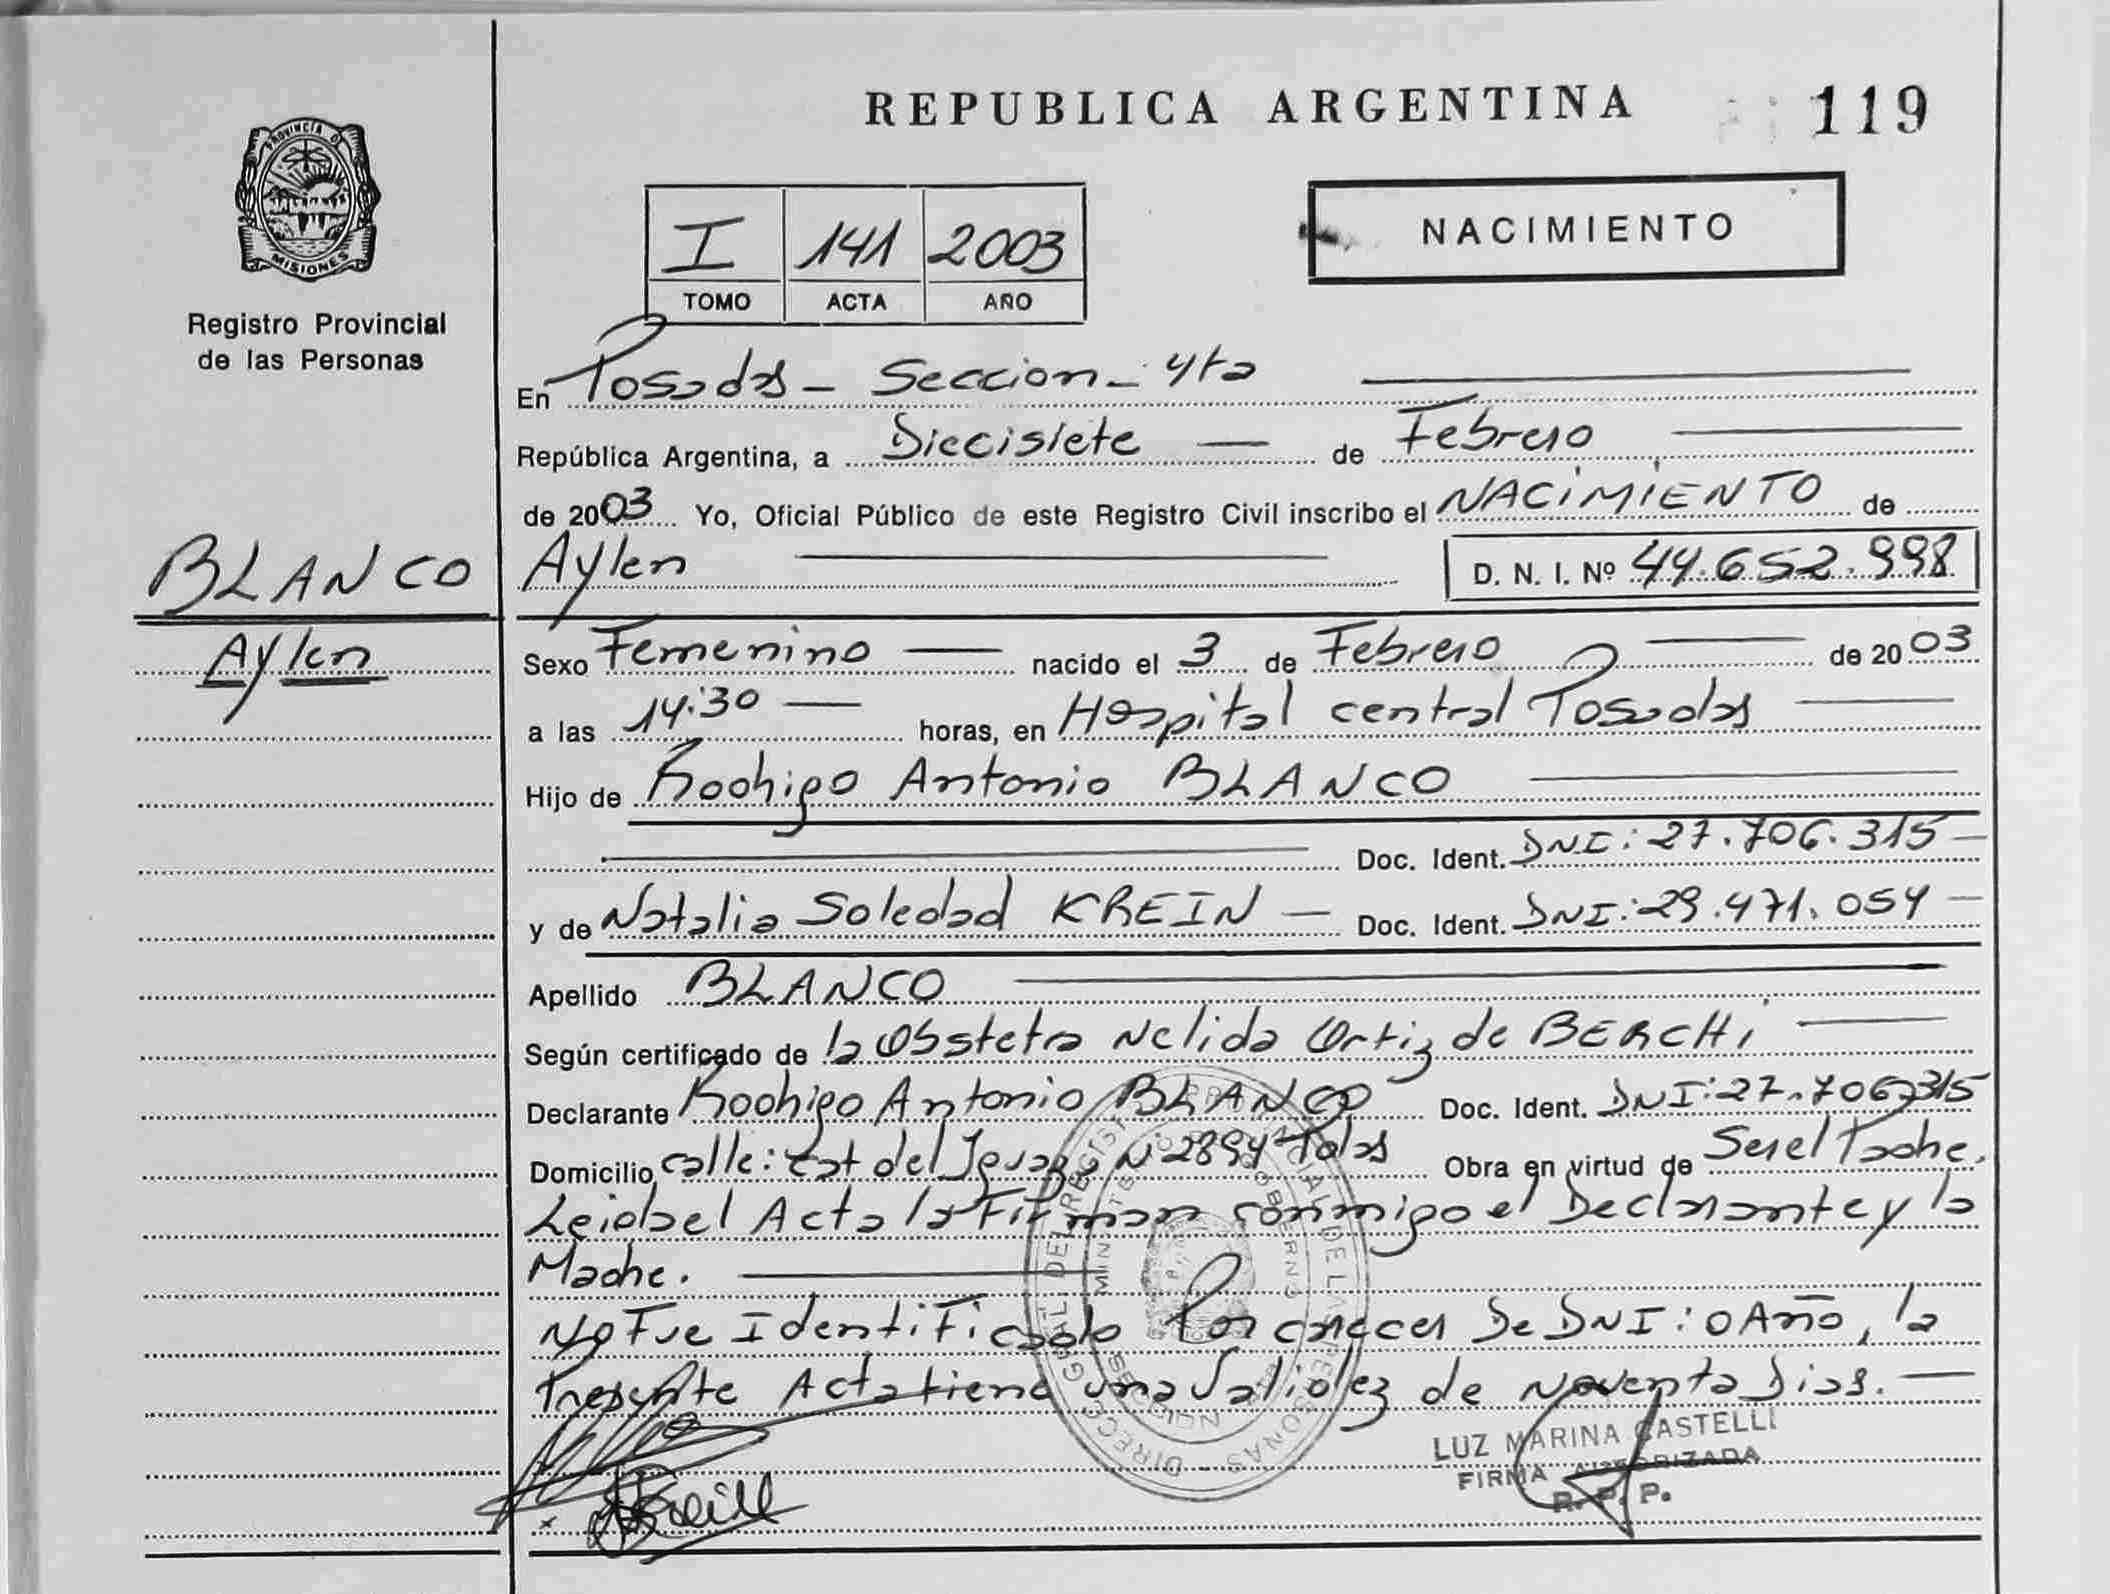 REPUBLICA ARGENTINA 119
PROVINCIA DE MISIONES
Registro Provincial
de las Personas
I 141 2003
TOMO ACTA AÑO
NACIMIENTO
En Posadas - Seccion - 4ta
República Argentina, a Diecisiete de Febrero
de 2003 Yo, Oficial Público de este Registro Civil inscribo el NACIMIENTO de
BLANCO
Aylen
Aylen D. N. I. Nº 44.652.998
Sexo Femenino nacido el 3 de Febrero de 2003
a las 14:30 horas, en Hospital central Posadas
Hijo de Rodrigo Antonio BLANCO
Doc. Ident. DNI: 27.706.315
y de Natalia Soledad KREIN Doc. Ident. DNI: 29.471.054
Apellido BLANCO
Según certificado de la Obstetra Nelida Ortiz de BERCHI
Declarante Rodrigo Antonio BLANCO Doc. Ident. DNI: 27.706.315
Domicilio calle: Cat del Iguazu N: 2894 Pdas Obra en virtud de Ser el Padre.
Leida el Acta la Firman conmigo el Declarante y la
Madre.
No Fue Identificado Por carecer De DNI: 0 Año, la
Presente Acta tiene una Validez de Noventa Dias.
LUZ MARINA CASTELLI
FIRMA AUTORIZADA
R. P. P.